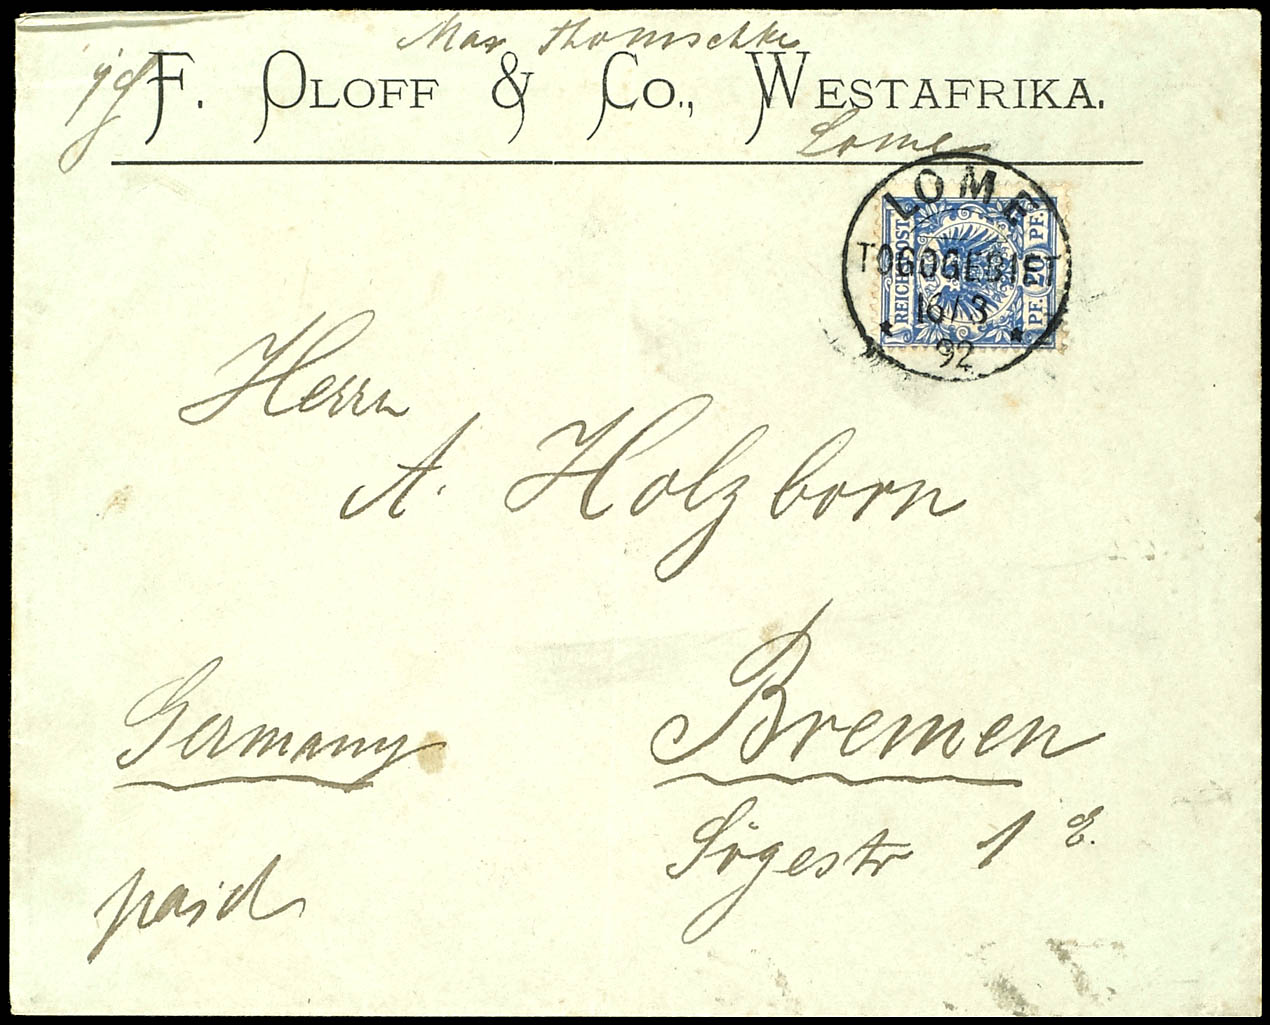 Max Thomschke
F. OLOFF & CO., WESTAFRIKA.
Lome
LOME
TOGOGEBIET
16/3
92
REICHSPOST
PF. 20 PF.
Herrn
A. Holzborn
Germany
Bremen
Sögestr 1 E.
paid